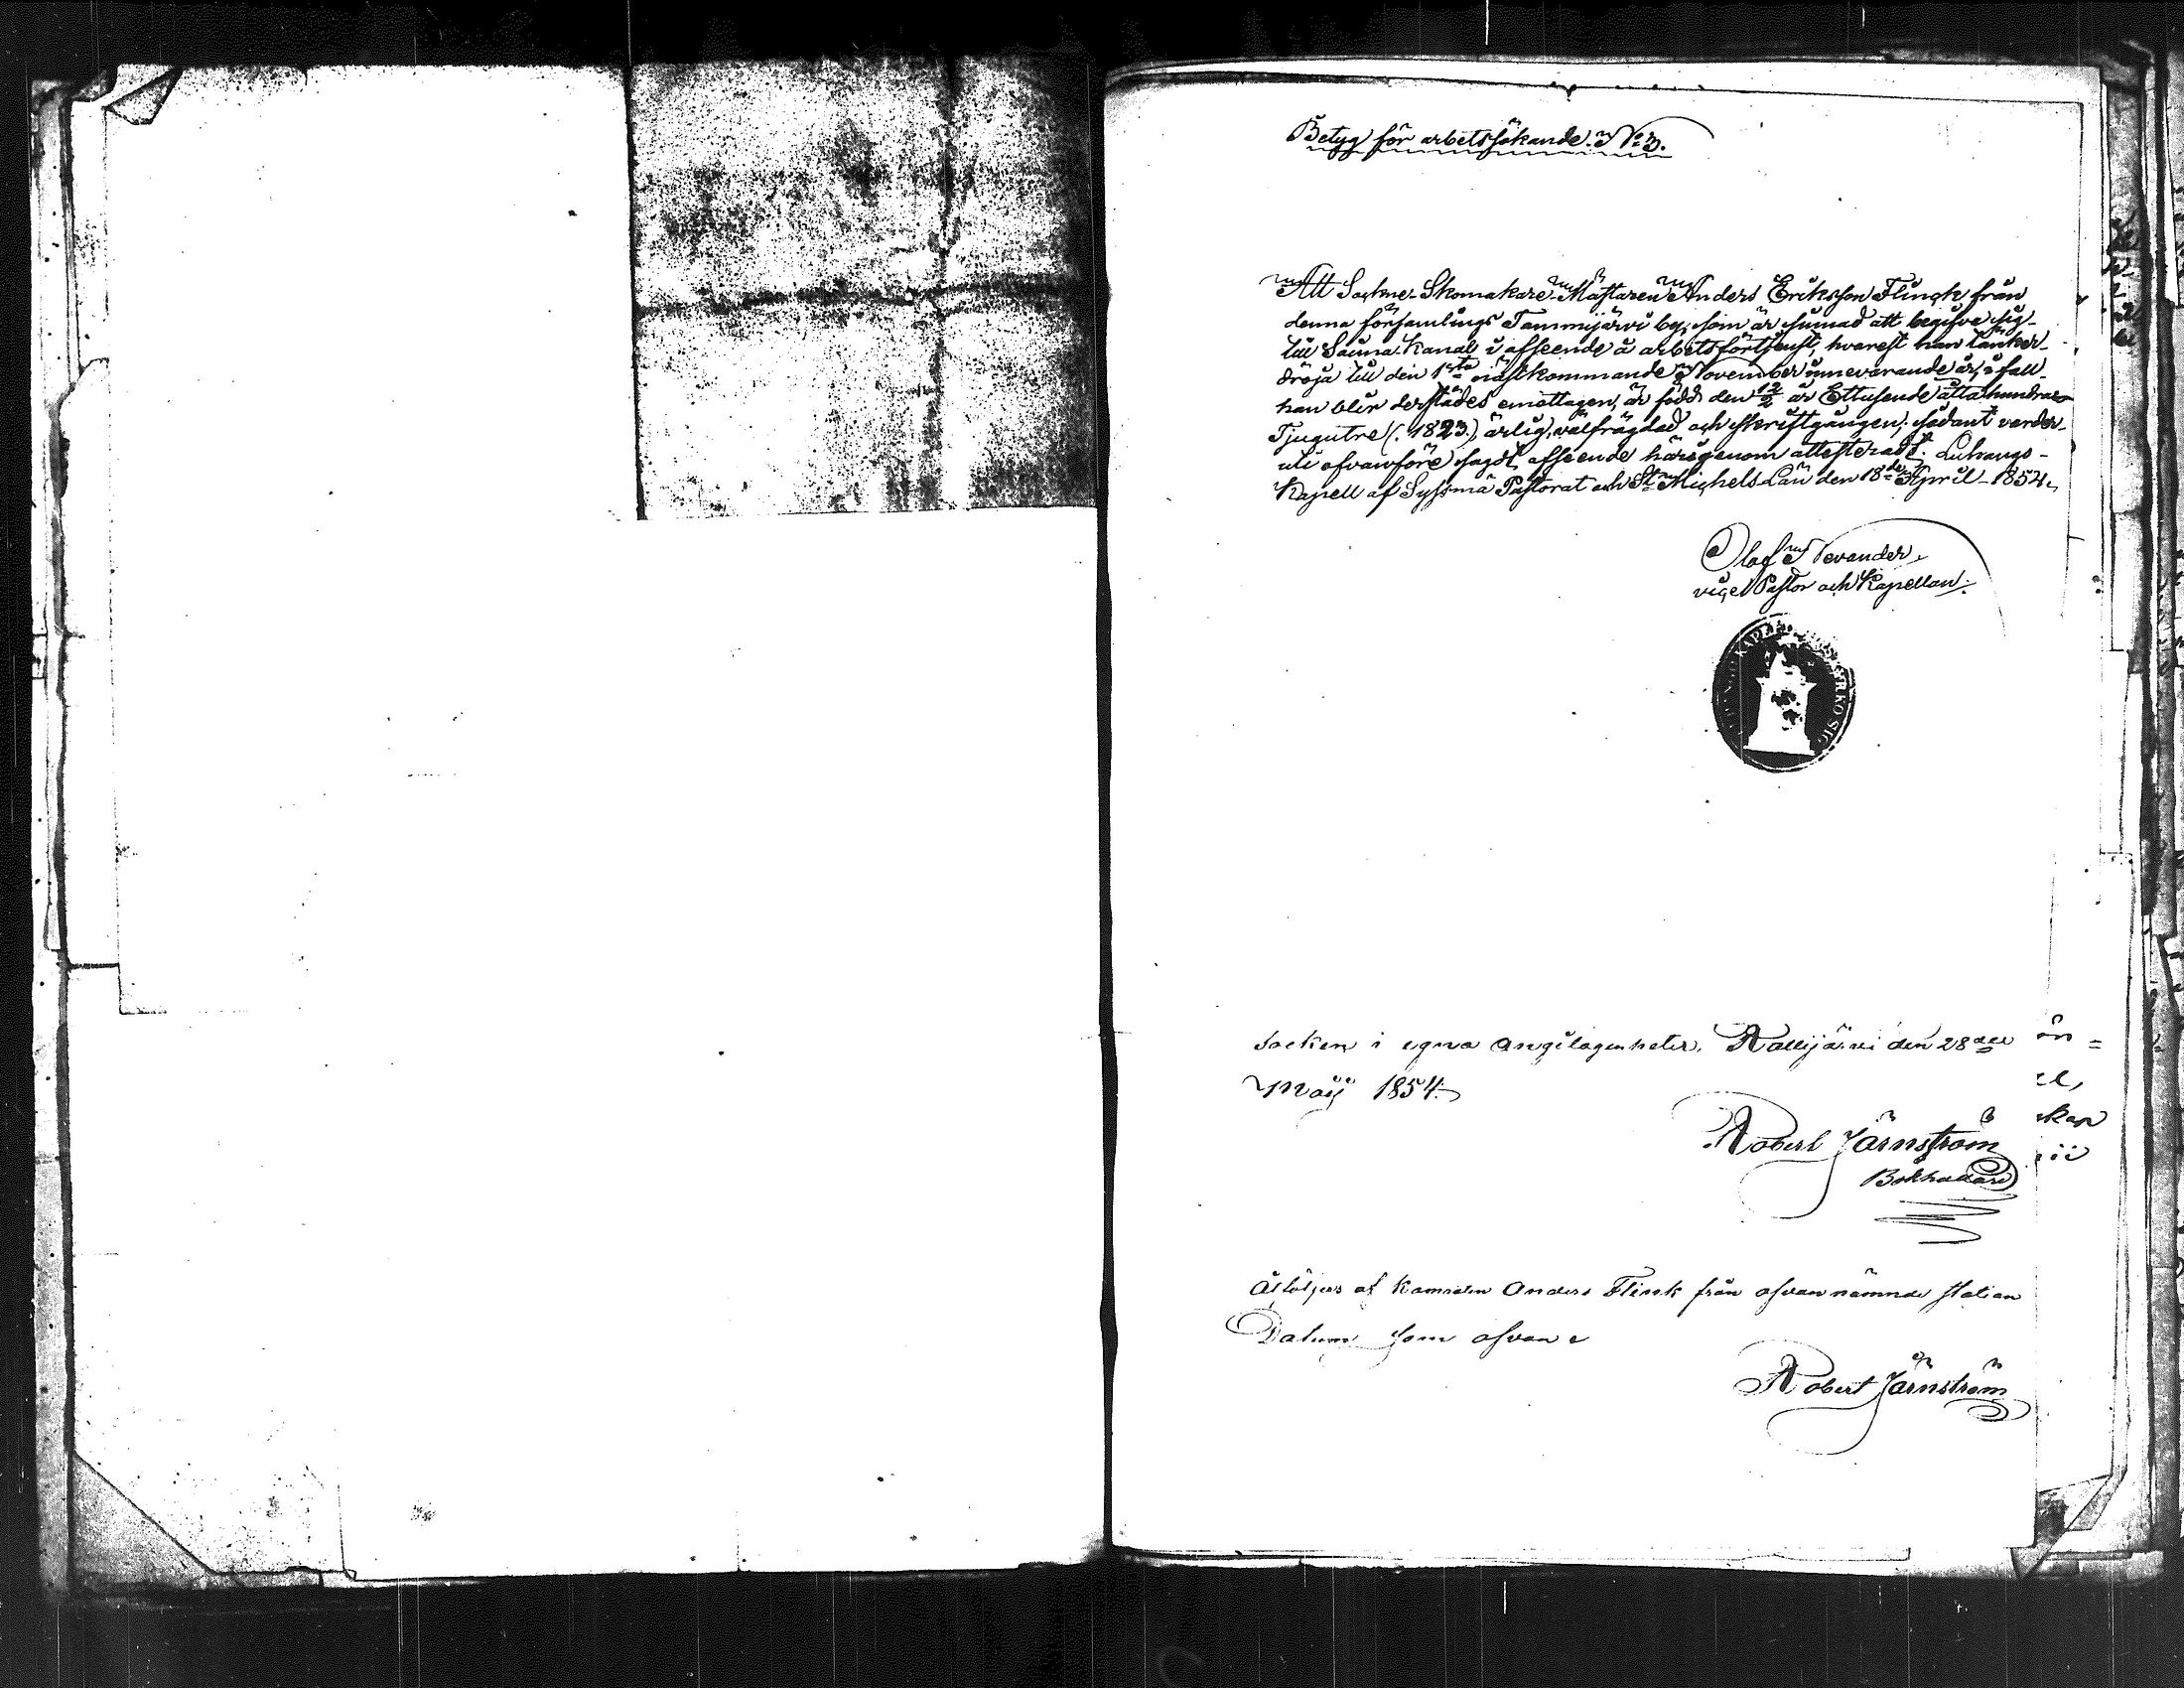 Betyg för arbetssökande. No 3.
Att Sockne-Skomakare-Mästaren Anders Eriksson Flinck från
denna församlings Tammijärvi by, som är sinnad att begifve sig
till Saima Kanal i afseende å arbetsförtjenst, hvarest han tänker
dröja till den 1sta nästkommande November innevarande år, i fall
han blir derstädes emottagen, är född den 12/2 år Ettusende åttahundra
Tjugutre (: 1823 :), ärlig, välfrägdad och skriftgången; sådant varder
uti ofvanföre sagdt afseende härigenom attesteradt. Luhango-
Kapell af Sysmä Pastorat och St Michels Län den 18de April 1854.
Olof Nevander,
vice Pastor och Kapellan.
KAPELL KYRKO SIG
socken i egna angelägenheter. Rallijärvi den 28de
Maji 1854.
Robert Järnström
Bokhållare
än =
el,
skap
Åtföljes af Kamraten Anders Flink från ofvannämnde station
Datum som ofvan
Robert Järnström